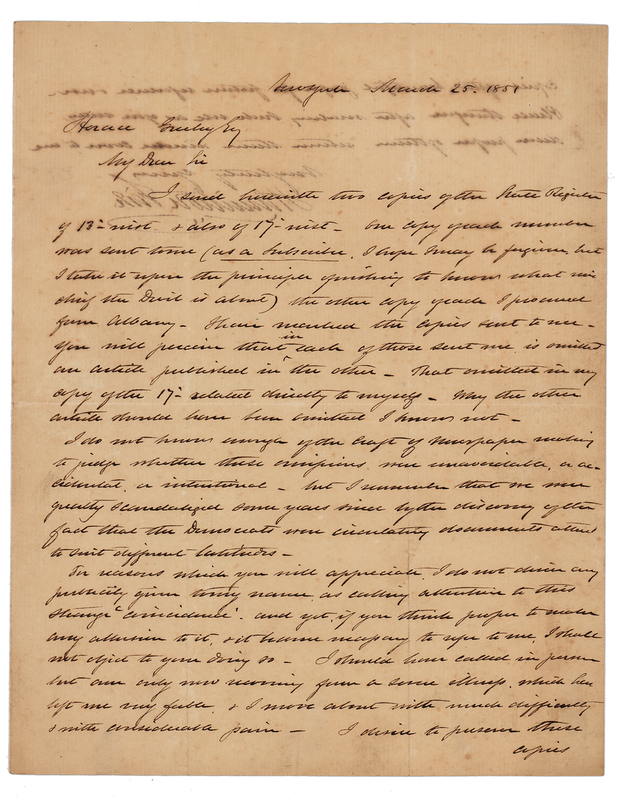 New York March 25. 1851
Horace Greeley Esq
My Dear Sir
I send herewith two copies of the State Register
of 13th inst. & also of 17th inst - One copy of each number
was sent to me (as a Subscriber, I hope I may be forgiven, but
I take it upon the principle of wishing to know what mis
chief the Devil is about) the other copy of each I procured
from Albany - I have marked the copies sent to me -
You will perceive that in each of those sent me is omitted
an article published in the other - That omitted in my
copy of the 17th related directly to myself - Why the other
article should have been omitted I know not -
I do not know enough of the craft of Newspaper making
to judge whether these omissions were unavoidable, or ac-
cidental, or intentional - but I remember that we were
greatly scandalized some years since by the discovery of the
fact that the Democrats were circulating documents altered
to suit different latitudes -
For reasons which you will appreciate, I do not desire any
publicity given to my name, as calling attention to this
strange "coincidence". and yet, if you think proper to make
any allusion to it, & it become necessary to refer to me, I shall
not object to your doing so - I should have called in person
but am only now recovering from a severe illness, which has
left me very feeble, & I move about with much difficulty
& with considerable pain - I desire to preserve these
copies